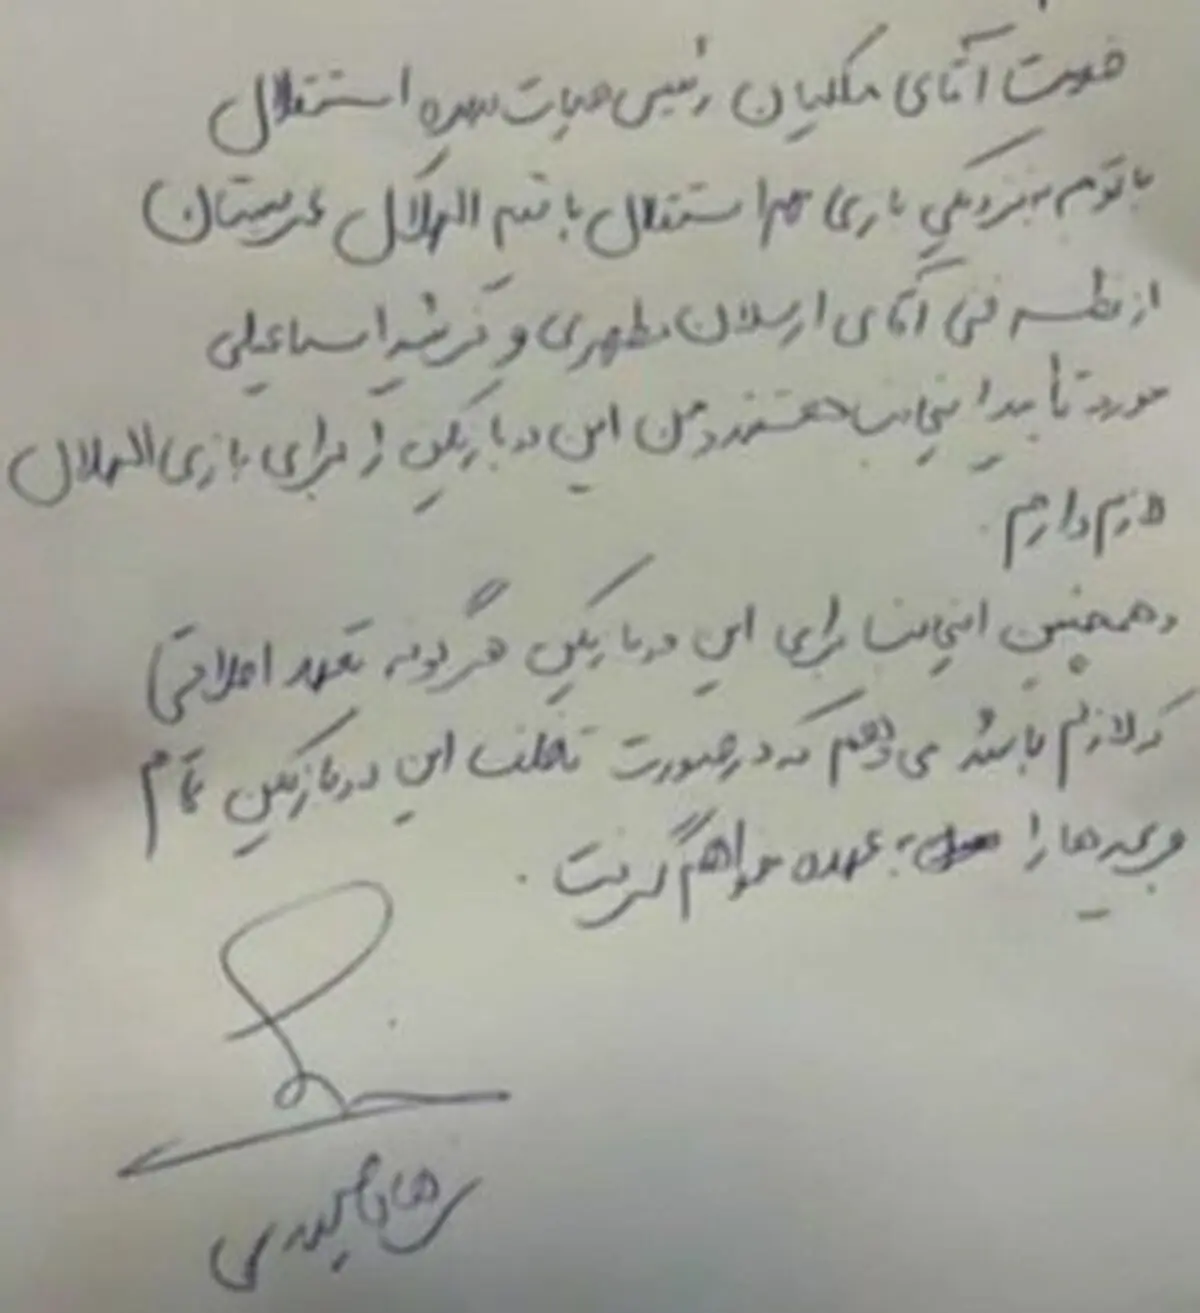 خدمت آقای ملکیان رئیس هیات مدیره استقلال
با توجه به نزدیکی بازی مهم استقلال با تیم الهلال عربستان
از نظر فنی آقای ارسلان مطهری و فرشید اسماعیلی
مورد تأیید اینجانب هستند و من این دو بازیکن را برای بازی الهلال
لازم دارم.
و همچنین اینجانب برای این دو بازیکن هر گونه تعهد اخلاقی
که لازم باشد می دهم که در صورت تخلف این دو بازیکن تمام
جریمه ها را به عهده خواهم گرفت.